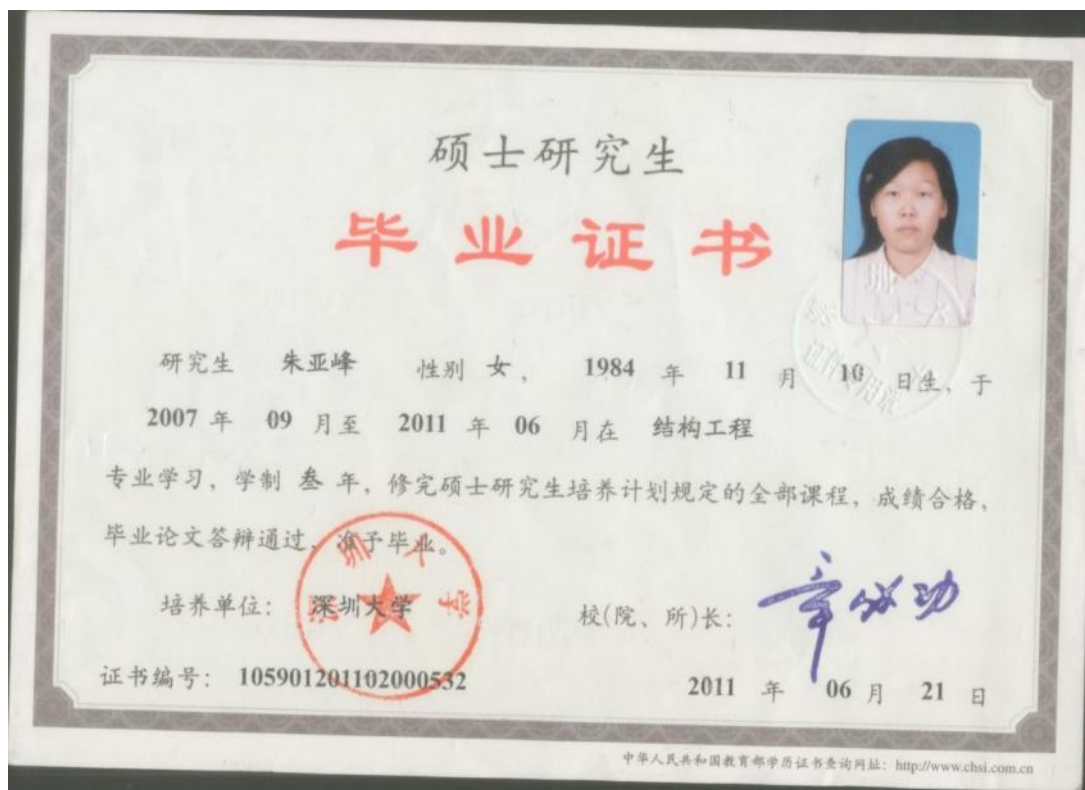 硕士研究生
毕业证书
研究生 朱亚峰 性别 女, 1984 年 11 月 10 日生, 于
2007 年 09 月至 2011 年 06 月在 结构工程
专业学习, 学制 叁 年, 修完硕士研究生培养计划规定的全部课程, 成绩合格,
毕业论文答辩通过, 准予毕业。
培养单位: 深圳大学
深圳大学
校(院、所)长: 章必功
证书编号: 105901201102000532
2011 年 06 月 21 日
中华人民共和国教育部学历证书查询网址: http://www.chsi.com.cn